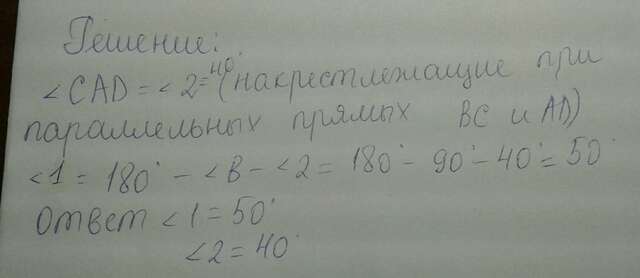 Решение:
∠CAD = ∠2 = 40° (накрестлежащие при
параллельных прямых BC и AD)
∠1 = 180° - ∠B - ∠2 = 180° - 90° - 40° = 50°
Ответ ∠1 = 50°
∠2 = 40°